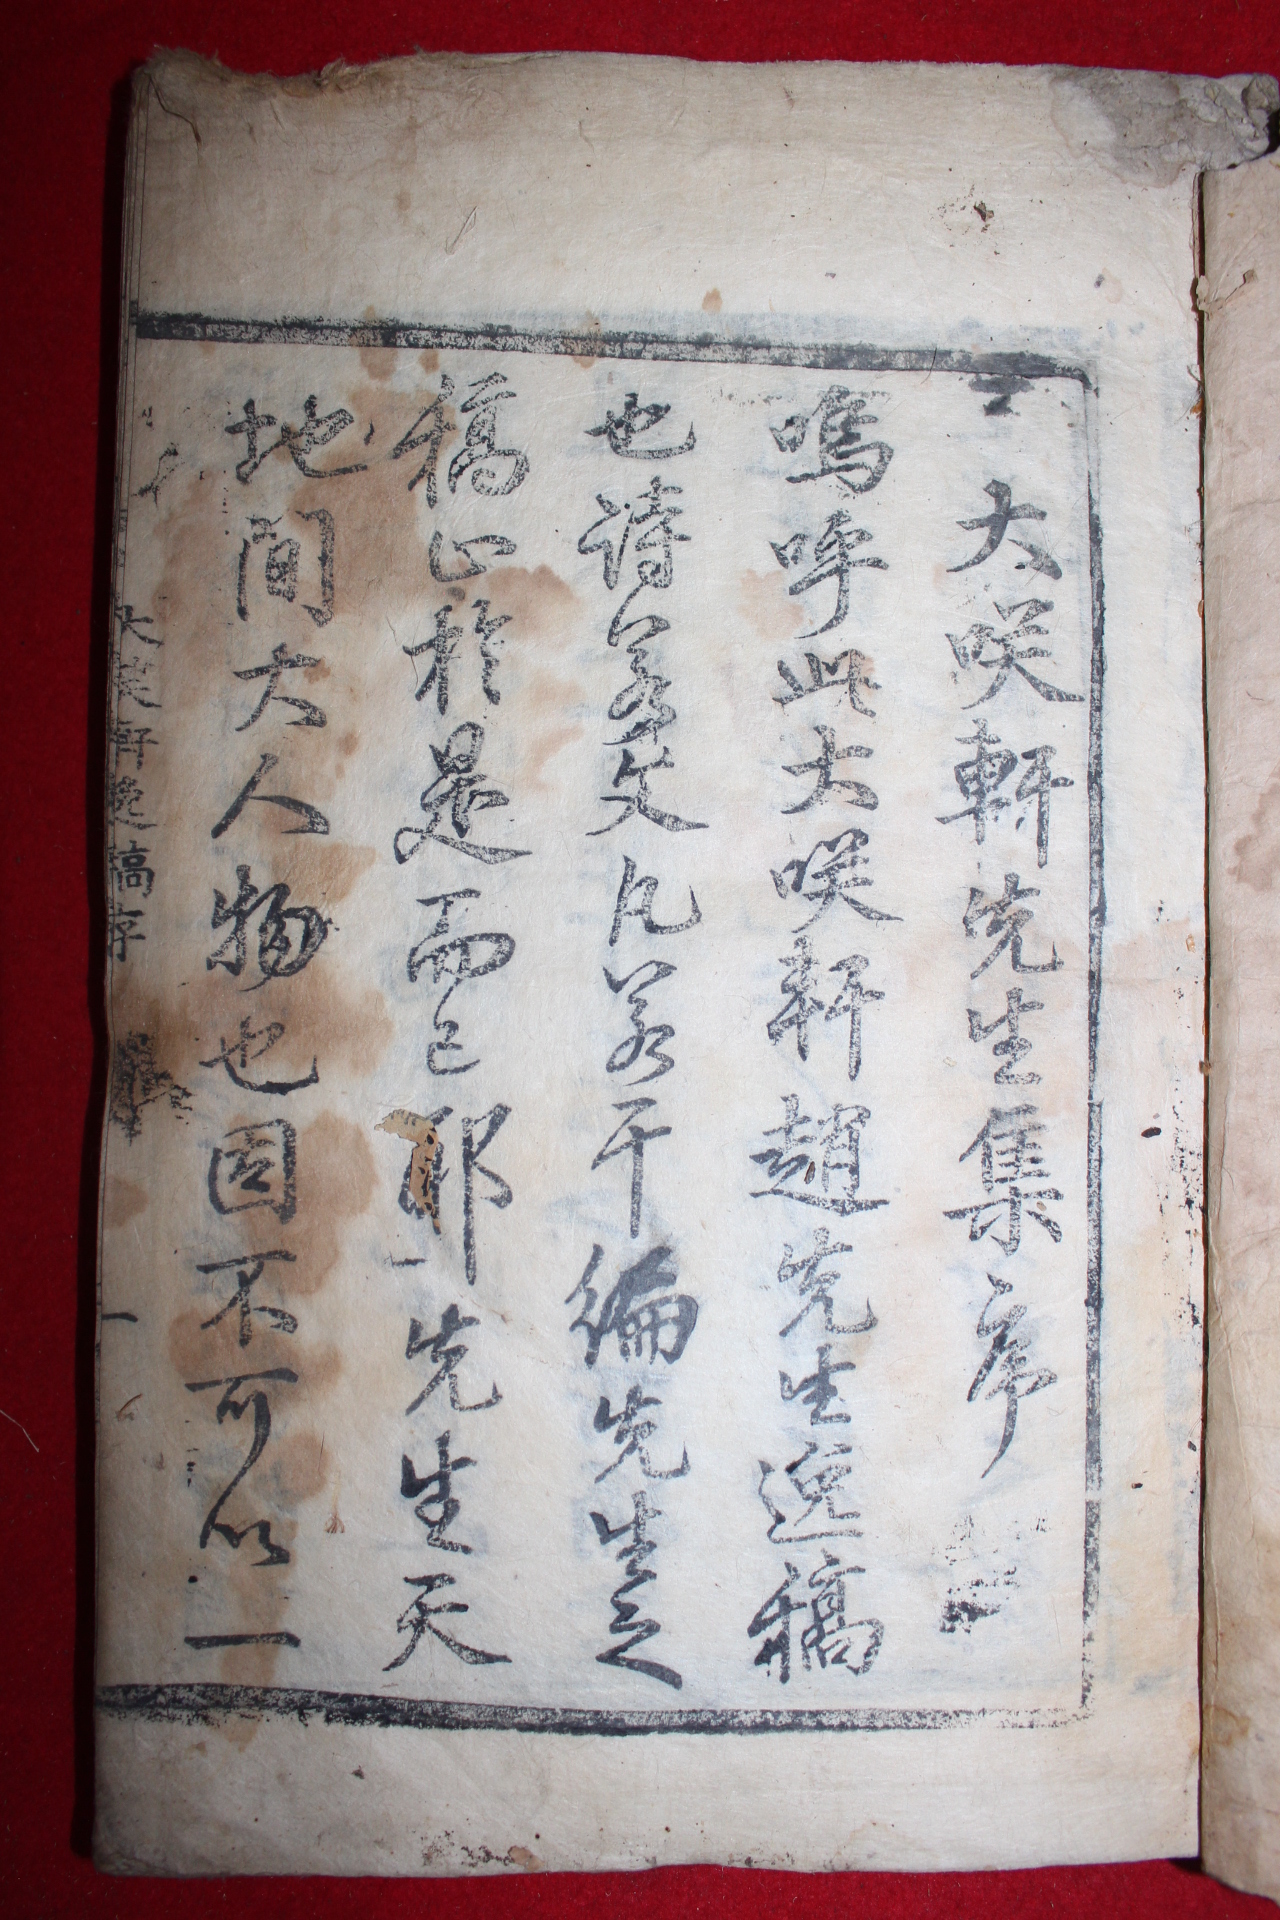 大咲軒先生集序
嗚呼此大咲軒趙先生逸稿
也詩若文凡若干編先生之
稿止於是而已耶先生天
地間大人物也固不可以一
大笑軒逸稿序
一